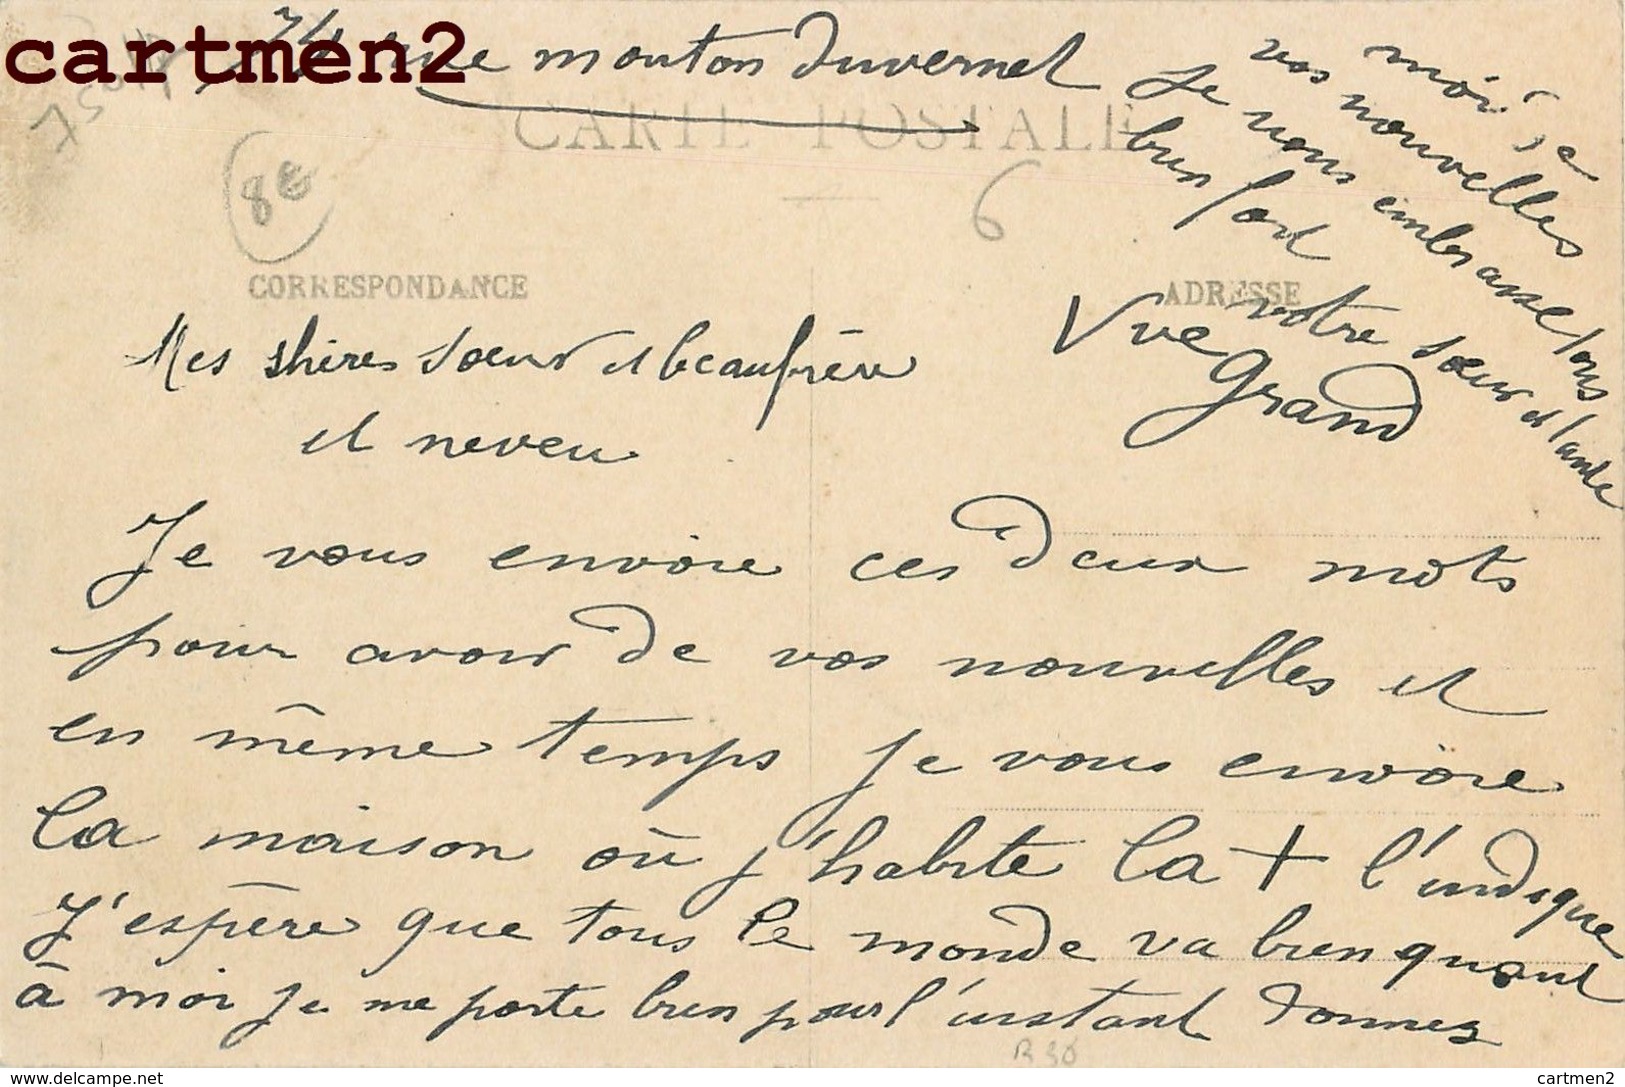 cartmen2
74 rue mouton Duvernet
75014
CARTE POSTALE
8€
6
CORRESPONDANCE
ADRESSE
Mes shères sœur et beaufrère
et neveu
Je vous envoie ces deux mots
pour avoir de vos nouvelles et
en même temps je vous envoie
la maison où j'habite la + l'indique
J'espère que tous le monde va bien quant
à moi je me porte bien pour l'instant donnez
moi de
vos nouvelles
Je vous embrasse tous
bien fort
votre sœur et tante
Vve Grand
R30
www.delcampe.net
cartmen2